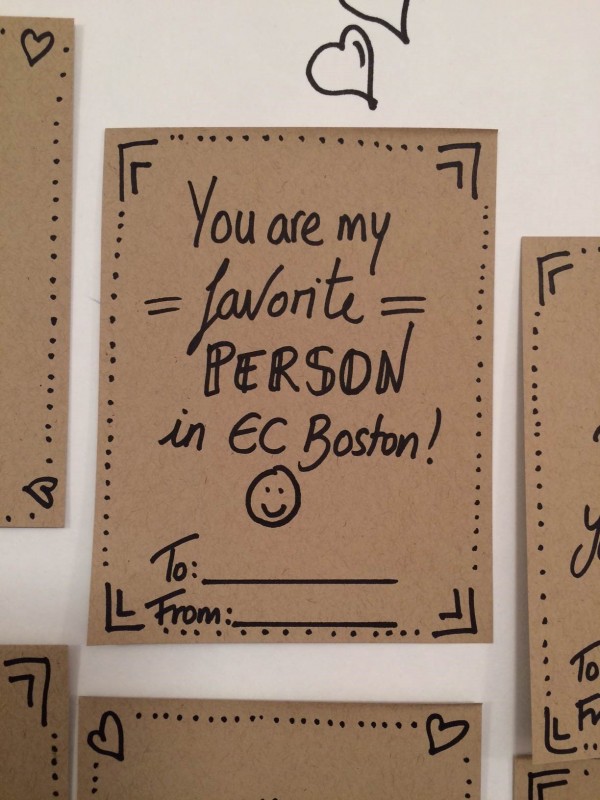 You are my
= favorite =
PERSON
in EC Boston!
To:
From:
To